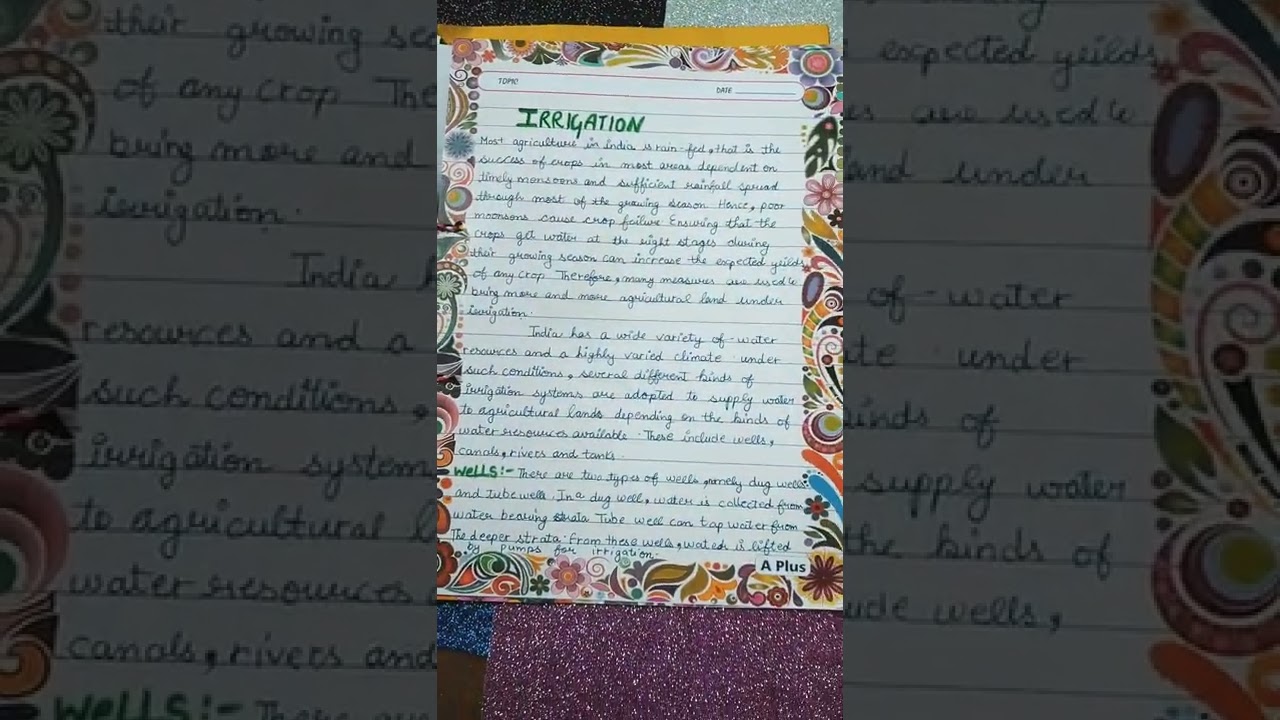 TOPIC
DATE
IRRIGATION
Most agriculture in india is rain-fed, that is the
success of crops in most areas dependent on
timely monsoons and sufficient rainfall spread
through most of the growing season Hence, poor
moonsons cause crop failure Ensuring that the
crops get water at the right stages during
their growing season can increase the expected yeilds
of any crop Therefore, many measures are used to
bring more and more agricultural land under
irrigation.
India has a wide variety of-water
resources and a highly varied climate under
such conditions, several different kinds of
irrigation systems are adopted to supply water
to agricultural lands depending on the kinds of
water resources available. These include wells,
canals, rivers and tanks.
Wells:- There are two types of wells, namely dug wells
and tube wells. In a dug well, water is collected from
water bearing strata Tube well can tap water from
The deeper strata. From these wells, water is lifted
by pumps for irrigation.
A Plus